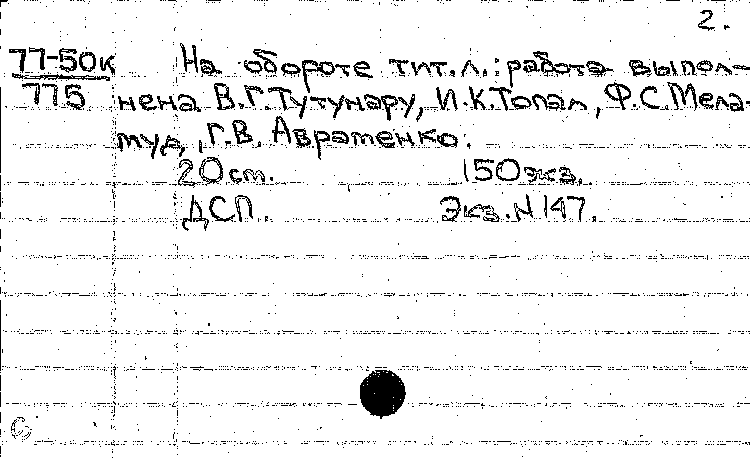 2.
77-50к На обороте тит.л.: работа выпол-
775 нена В.Г.Тутунару, И.К.Топал, Ф.С.Мела-
муд, Г.В. Авраменко.
20 см. 150 экз.
ДСП. Экз.N147.